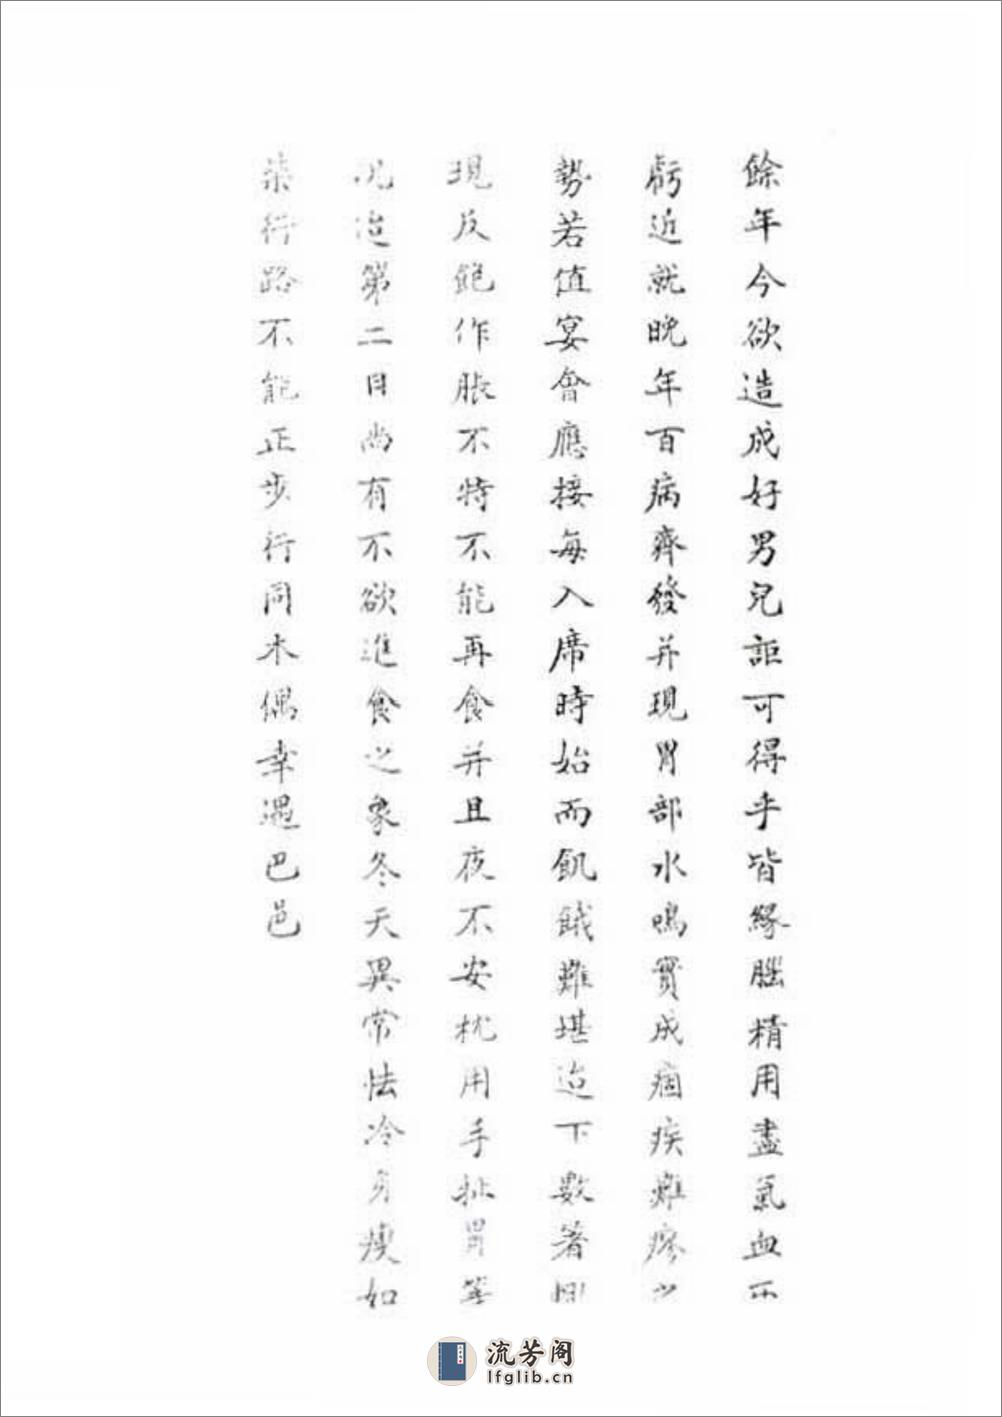 餘年今欲造成好男兒詎可得乎皆緣腦精用盡氣血不
虧近就晚年百病齊發并現胃部水鳴實成痼疾難療之
勢若值宴會應接每入席時始而飢餓難堪迨下數箸則
現反飽作脹不特不能再食并且夜不安枕用手扯胃等
況迨第二日尚有不欲進食之象冬天異常怯冷身瘦如
柴行路不能正步行同木偶幸遇巴邑
流芳阁
lfglib.cn